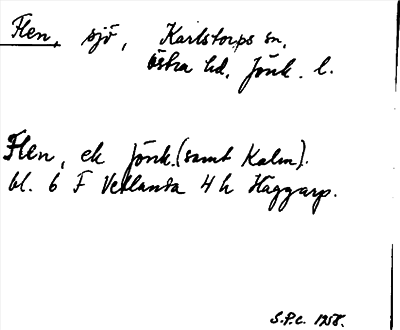 Flen, sjö, Karlstorps sn.
Östra hd. Jönk. l.
Flen, ek Jönk. (samt Kalm).
bl. 6 F Vetlanda 4 h Haggarp.
S.P.C. 1958.